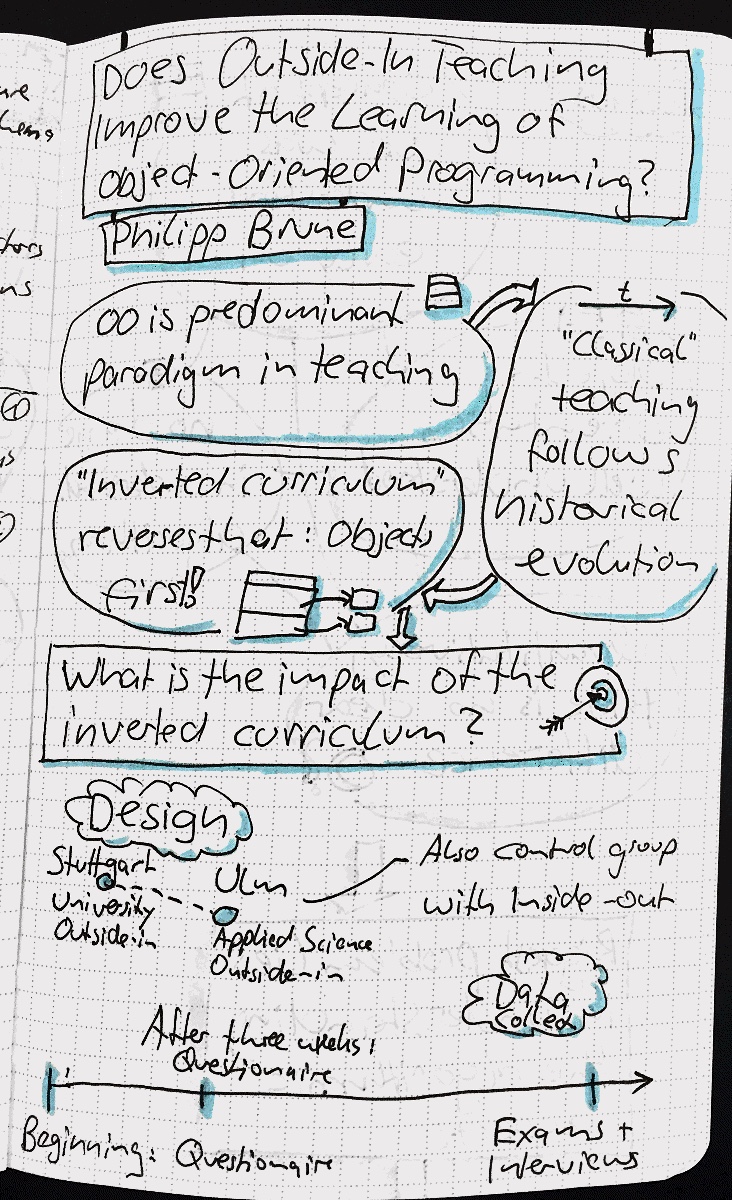 Does Outside-In Teaching
Improve the Learning of
Object-Oriented Programming?
Philipp Brune
OO is predominant
paradigm in teaching
t
"Classical"
teaching
follows
historical
evolution
"Inverted curriculum"
reverses that: Objects
first!
What is the impact of the
inverted curriculum?
Design
Stuttgart
University
Outside-in
Ulm
Applied Science
Outside-in
Also control group
with Inside-out
Data
collect
After three weeks:
Questionaire
Beginning: Questionaire
Exams +
Interviews